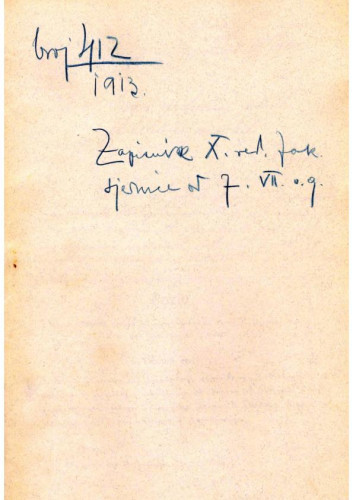 broj 412
1913.
Zapisnik X. red. fak.
sjednice od 7. VII. o.g.